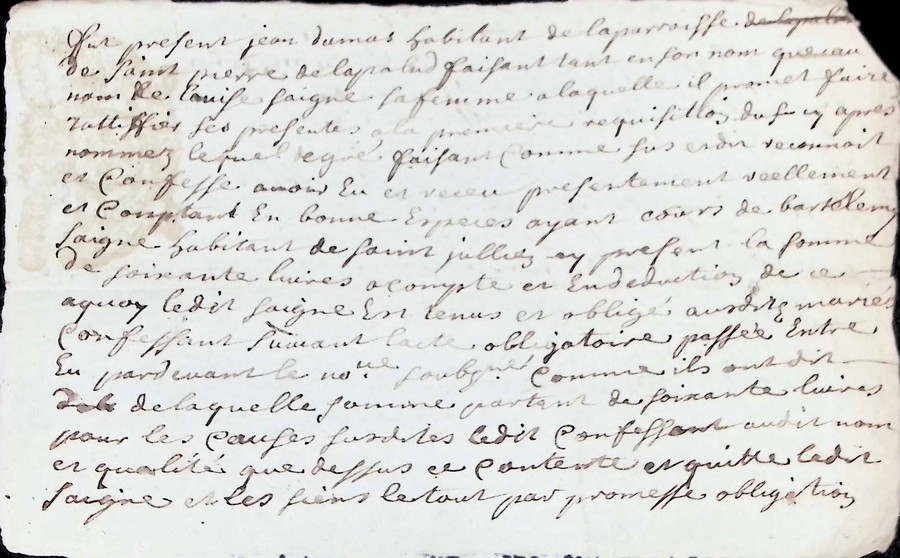 fut present jean dumas habitant de laparroisse de lapalud
de saint pierre de lapalud faisant tant en son nom que au
nom de louise saigne sa femme a laquelle il promet faire
rattiffier ses presentes a la premiere requisition du sr cy après
nommez lequel de gré faisant comme sus et dit reconnoit
et confesse avoir eu et receu presentement reellement
et comptant en bonne especes ayant cours de bartelemy
saigne habitant de saint jullien cy present la somme
de soixante livres acompte et en deduction de ce
aquoy ledit saigne est tenus et obligé ausdits mariés
confessant suivant lacte obligatoire passée entre
eu pardevant le nore soubsigné comme ils ont dit
de laquelle somme partant de soixante livres
pour les causes susdites ledit confessant audit nom
et qualité que dessus ce contente et quitte ledit
saigne et les siens le tout par promesse obligation